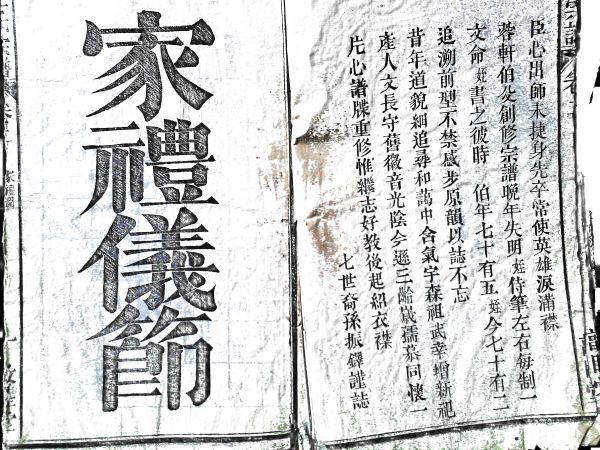 臣心出師未捷身先卒常使英雄淚滿襟
蓉軒伯父創修宗譜晚年失明姪侍筆左右每制一
文命姪書之彼時 伯年七十有五姪今七十有二
追溯前型不禁感步原韻以誌不忘
昔年道貌細追尋和藹中含氣宇森祖武幸繒新祀
產人文長守舊徽音光陰今遜三齡歲孺慕同懷一
片心譜牒重修惟繼志好教後起紹衣襟
七世裔孫振鐸謹誌
家禮儀節